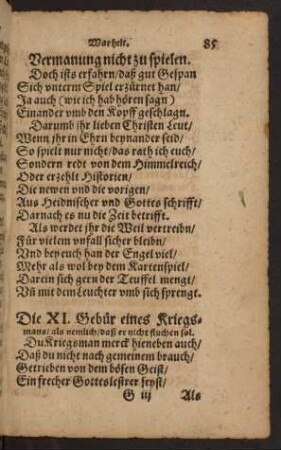 Warheit. 85
Vermanung nicht zu spielen.
Doch ists erfahrn/ daß gut Gespan
Sich vnterm Spiel erzürnet han/
Ja auch (wie ich hab hören sagn)
Einander vmb den Kopff geschlagn.
Darumb jhr lieben Christen Leut/
Wenn jhr in Ehrn beynander seid/
So spielt nur nicht/ das rath ich euch/
Sondern redt von dem Himmelreich/
Oder erzehlt Historien/
Die newen vnd die vorigen/
Aus Heidnischer vnd Gottes schrifft/
Darnach es nu die Zeit betrifft.
Als werdet jhr die Weil vertreibn/
Für vielem vnfall sicher bleibn/
Vnd bey euch han der Engel viel/
Mehr als wol bey dem Kartenspiel/
Darein sich gern der Teuffel mengt/
Vñ mit dem Leuchter vmb sich sprengt.
Die XI. Gebür eines Kriegs-
mans/ als nemlich/ daß er nicht fluchen sol.
Du Kriegsman merck hieneben auch/
Daß du nicht nach gemeinem brauch/
Getrieben von dem bösen Geist/
Ein frecher Gotteslestrer seyst/
G iij Als